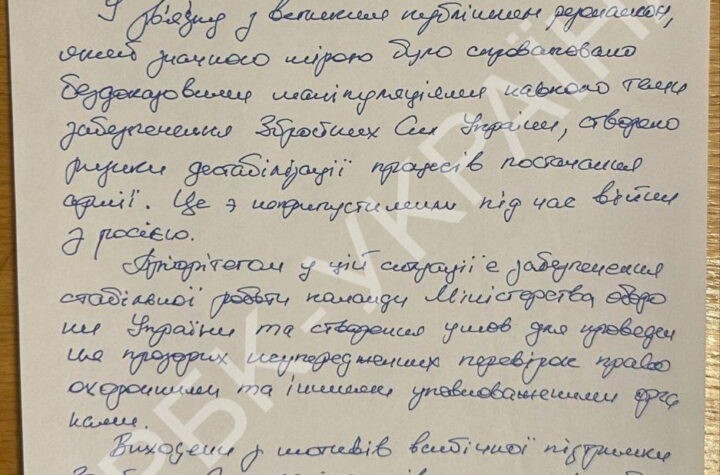 У зв'язку з великим публічним резонансом,
який значною мірою було спровоковано
бездоказовими маніпуляціями навколо теми
забезпечення Збройних Сил України, створено
ризики дестабілізації процесів постачання
армії. Це є неприпустимим під час війни
з росією.
Пріоритетом у цій ситуації є забезпечення
стабільної роботи команди Міністерства оборо
ни України та створення умов для проведен
ня прозорих неупереджених перевірок право
охоронними та іншими уповноваженими орга
нами.
Виходячи з мотивів всебічної підтримки
РБК-УКРАЇНА